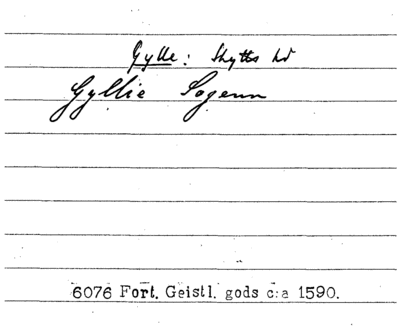 Gylle: Skytts hd
Gyllie Sogenn
6076 Fort. Geistl. gods c:a 1590.